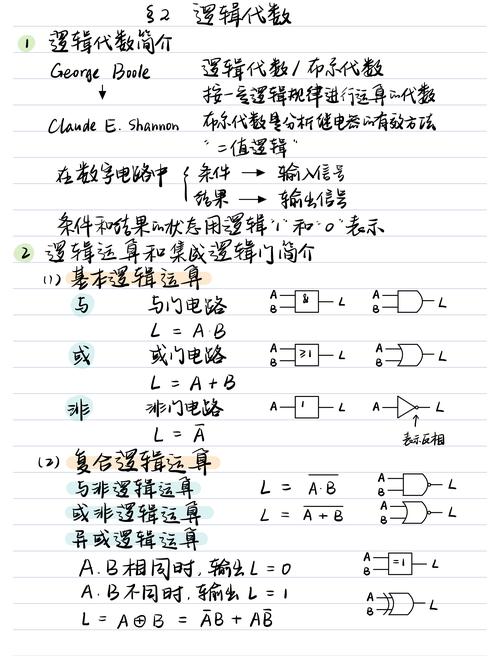 §2 逻辑代数
1 逻辑代数简介
George Boole 逻辑代数/布尔代数
按一定逻辑规律进行运算的代数
Claude E. Shannon 布尔代数是分析继电器的有效方法
"二值逻辑"
在数字电路中 { 条件 → 输入信号
结果 → 输出信号
条件和结果的状态用逻辑"1"和"0"表示
2 逻辑运算和集成逻辑门简介
(1) 基本逻辑运算
与 与门电路 A B & L A B L
L = A·B
或 或门电路 A B ≥1 L A B L
L = A + B
非 非门电路 A 1 L A L
L = A̅
表示反相
(2) 复合逻辑运算
与非逻辑运算 L = \overline{A·B} A B L
或非逻辑运算 L = \overline{A+B} A B L
异或逻辑运算
A.B相同时,输出L=0 A B =1 L
A.B不同时,输出L=1
L = A⊕B = A̅B + AB̅ A B L